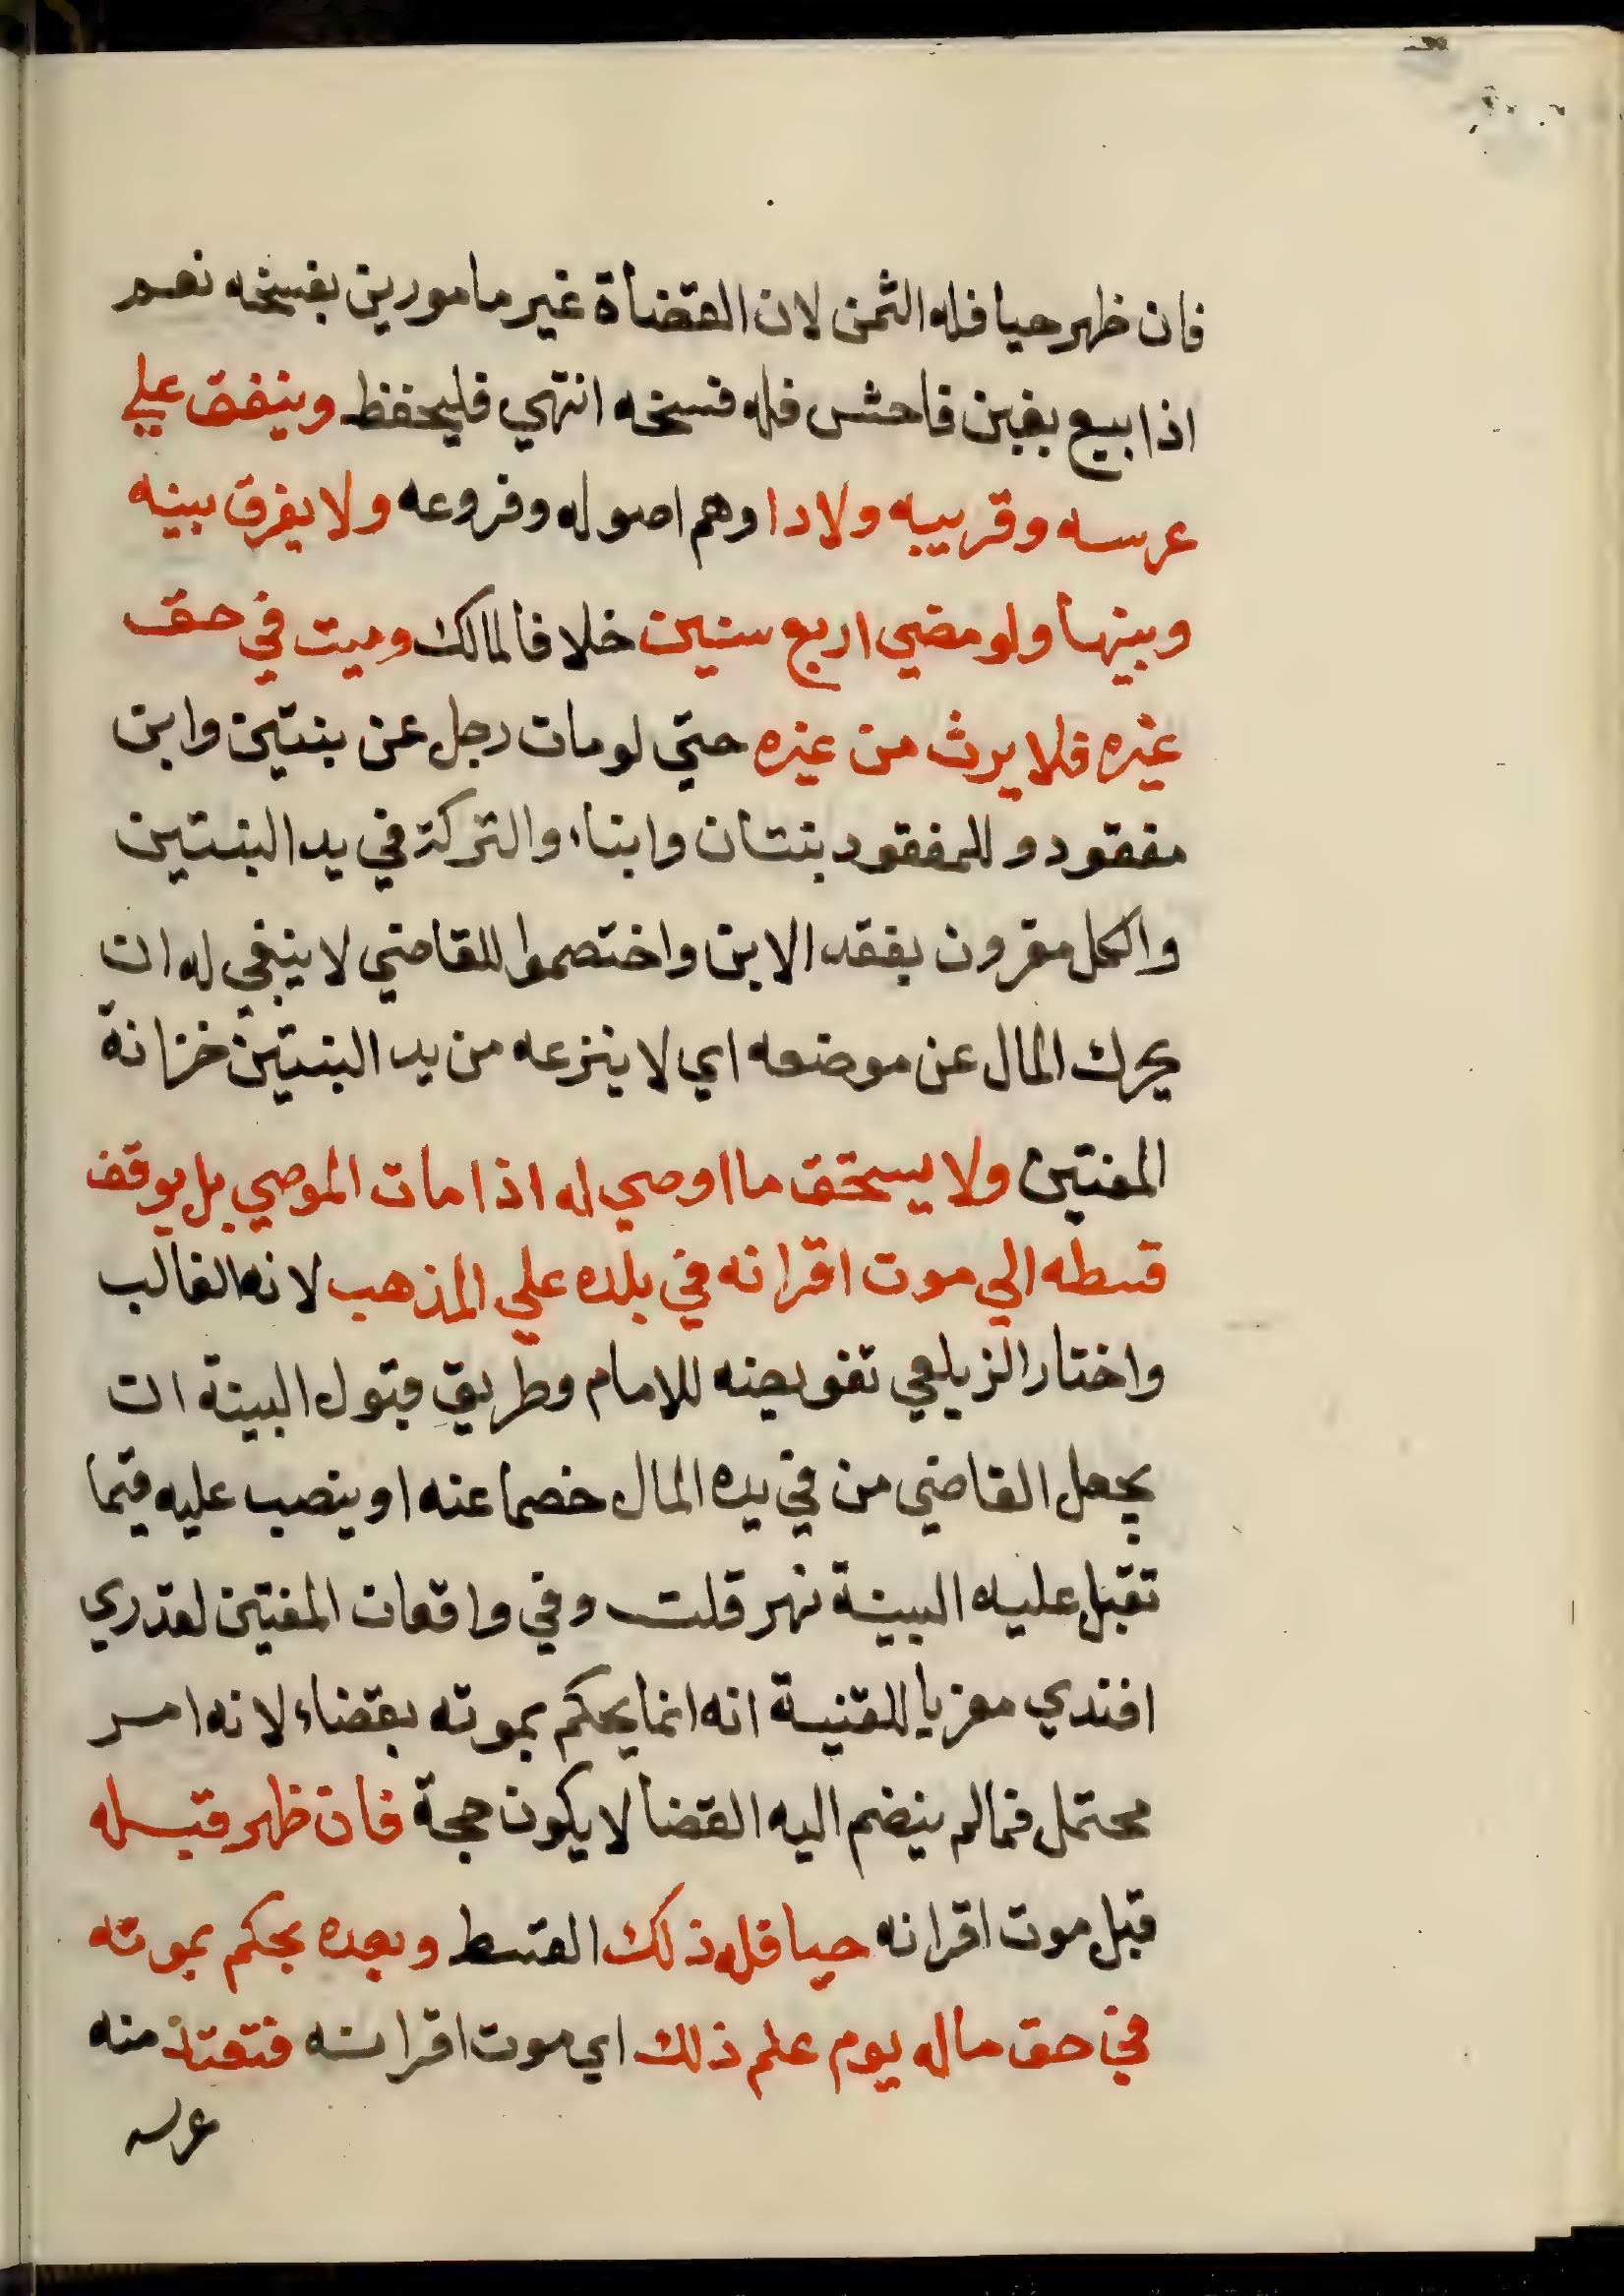 فان ظهر حيا فله الثمن لان القضاة غير مامورين بفسخه نعم
اذا بيع بغبن فاحش فله فسخه انتهي فليحفظ وينفق علي
عرسه وقريبه ولادا وهم اصوله وفروعه ولا يفرق بينه
وبينها ولو مضي اربع سنين خلافا لمالك وميت في حق
غيره فلا يرث من غيره حتي لو مات رجل عن بنتين وابن
مفقود وللمفقود بنتان وابناء والتركة في يد البنتين
والكل مقرون بفقد الابن واختصموا للقاضي لا ينبغي له ان
يحرك المال عن موضعه اي لا ينزعه من يد البنتين خزانة
المفتين ولا يستحق ما اوصي له اذا مات الموصي بل يوقف
قسطه الي موت اقرانه في بلده علي المذهب لانه الغالب
واختار الزيلعي تفويضه للامام وطريق قبول البينة ان
يجعل القاضي من في يده المال خصما عنه او ينصب عليه قيما
تقبل عليه البينة نهر قلت وفي واقعات المفتين لقدري
افندي معزيا للقنية انه انما يحكم بموته بقضاء لانه امر
محتمل فمالم ينضم اليه القضا لا يكون حجة فان ظهر قبله
قبل موت اقرانه حيا فله ذلك القسط وبعده يحكم بموته
في حق ماله يوم علم ذلك اي موت اقرانه فتعتد منه
عرسه